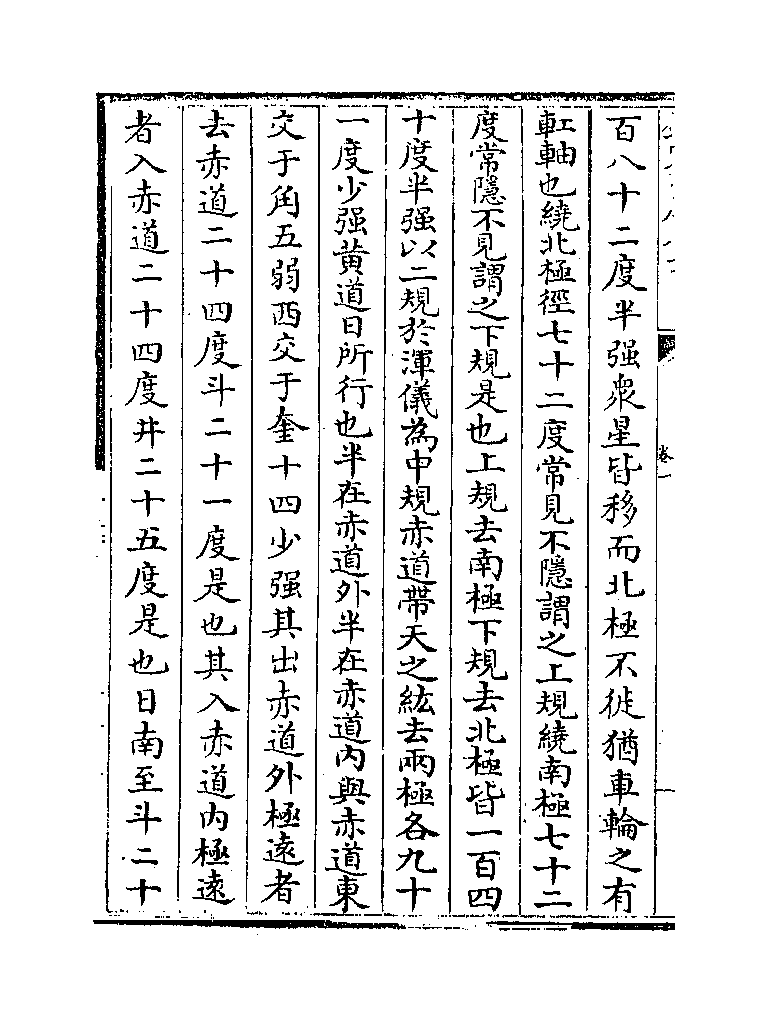 百八十二度半强衆星皆移而北極不徙猶車輪之有
䡏軸也繞北極徑七十二度常見不隱謂之上規繞南極七十二
度常隱不見謂之下規是也上規去南極下規去北極皆一百四
十度半强以二規於渾儀為中規赤道帶天之紘去兩極各九十
一度少强黄道日所行也半在赤道外半在赤道内與赤道東
交于角五弱西交于奎十四少强其出赤道外極逺者
去赤道二十四度斗二十一度是也其入赤道内極逺
者入赤道二十四度井二十五度是也日南至斗二十
卷一